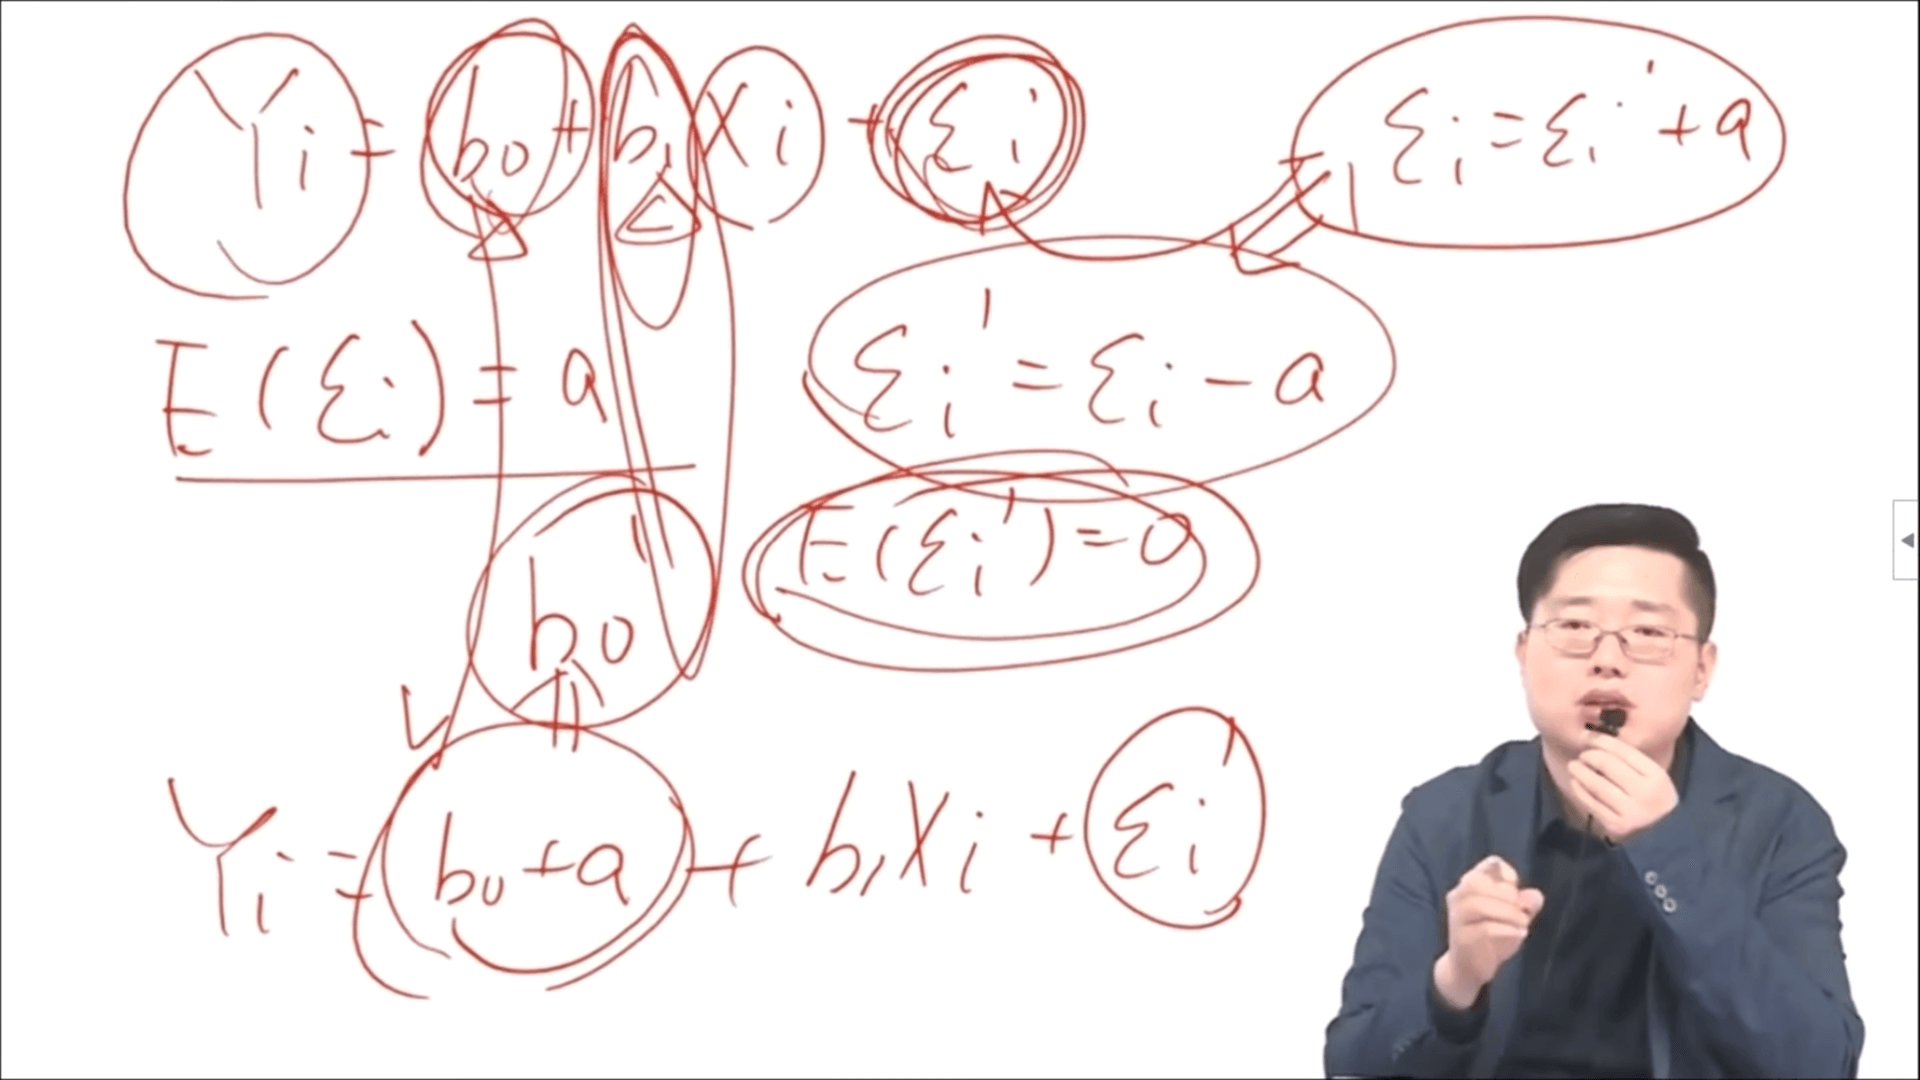 Yi = b0 + b1 Xi + εi
εi = εi' + a
E(εi) = a
εi' = εi - a
E(εi') = 0
b0'
Yi = b0 + a + b1Xi + εi'